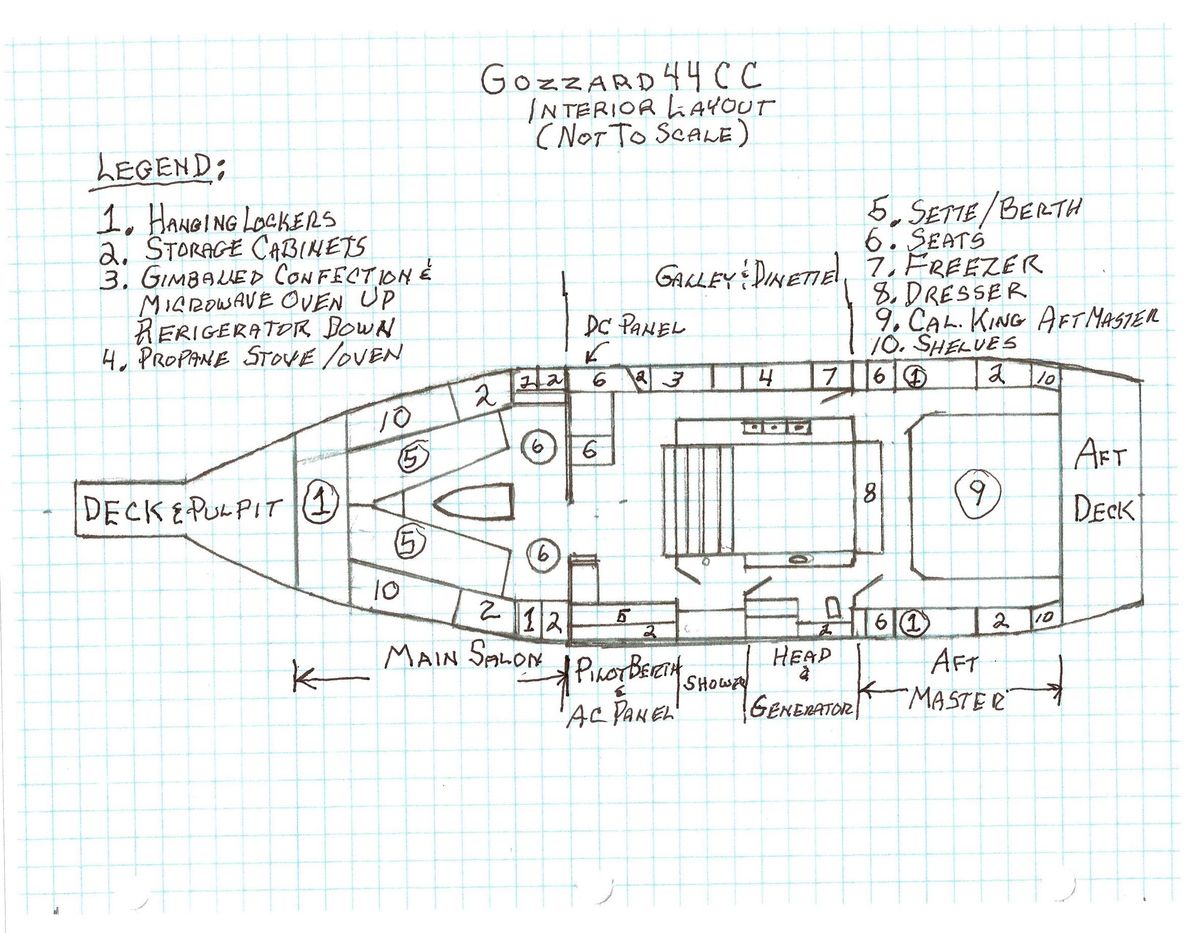 GOZZARD 44 CC
INTERIOR LAYOUT
(NOT TO SCALE)
LEGEND:
1. HANGING LOCKERS
2. STORAGE CABINETS
3. GIMBALLED CONFECTION &
MICROWAVE OVEN UP
RERIGERATOR DOWN
4. PROPANE STOVE/OVEN
5. SETTE/BERTH
6. SEATS
7. FREEZER
8. DRESSER
9. CAL. KING AFT MASTER
10. SHELVES
GALLEY & DINETTE
DC PANEL
1 2 6 2 3 4 7 6 1 2 10
10 2
5 6 6
DECK & PULPIT 1 8 9 AFT
DECK
5 6
10 2 1 2 5 2 2 6 1 2 10
MAIN SALON
PILOT BERTH
&
AC PANEL
SHOWER
HEAD
&
GENERATOR
AFT
MASTER